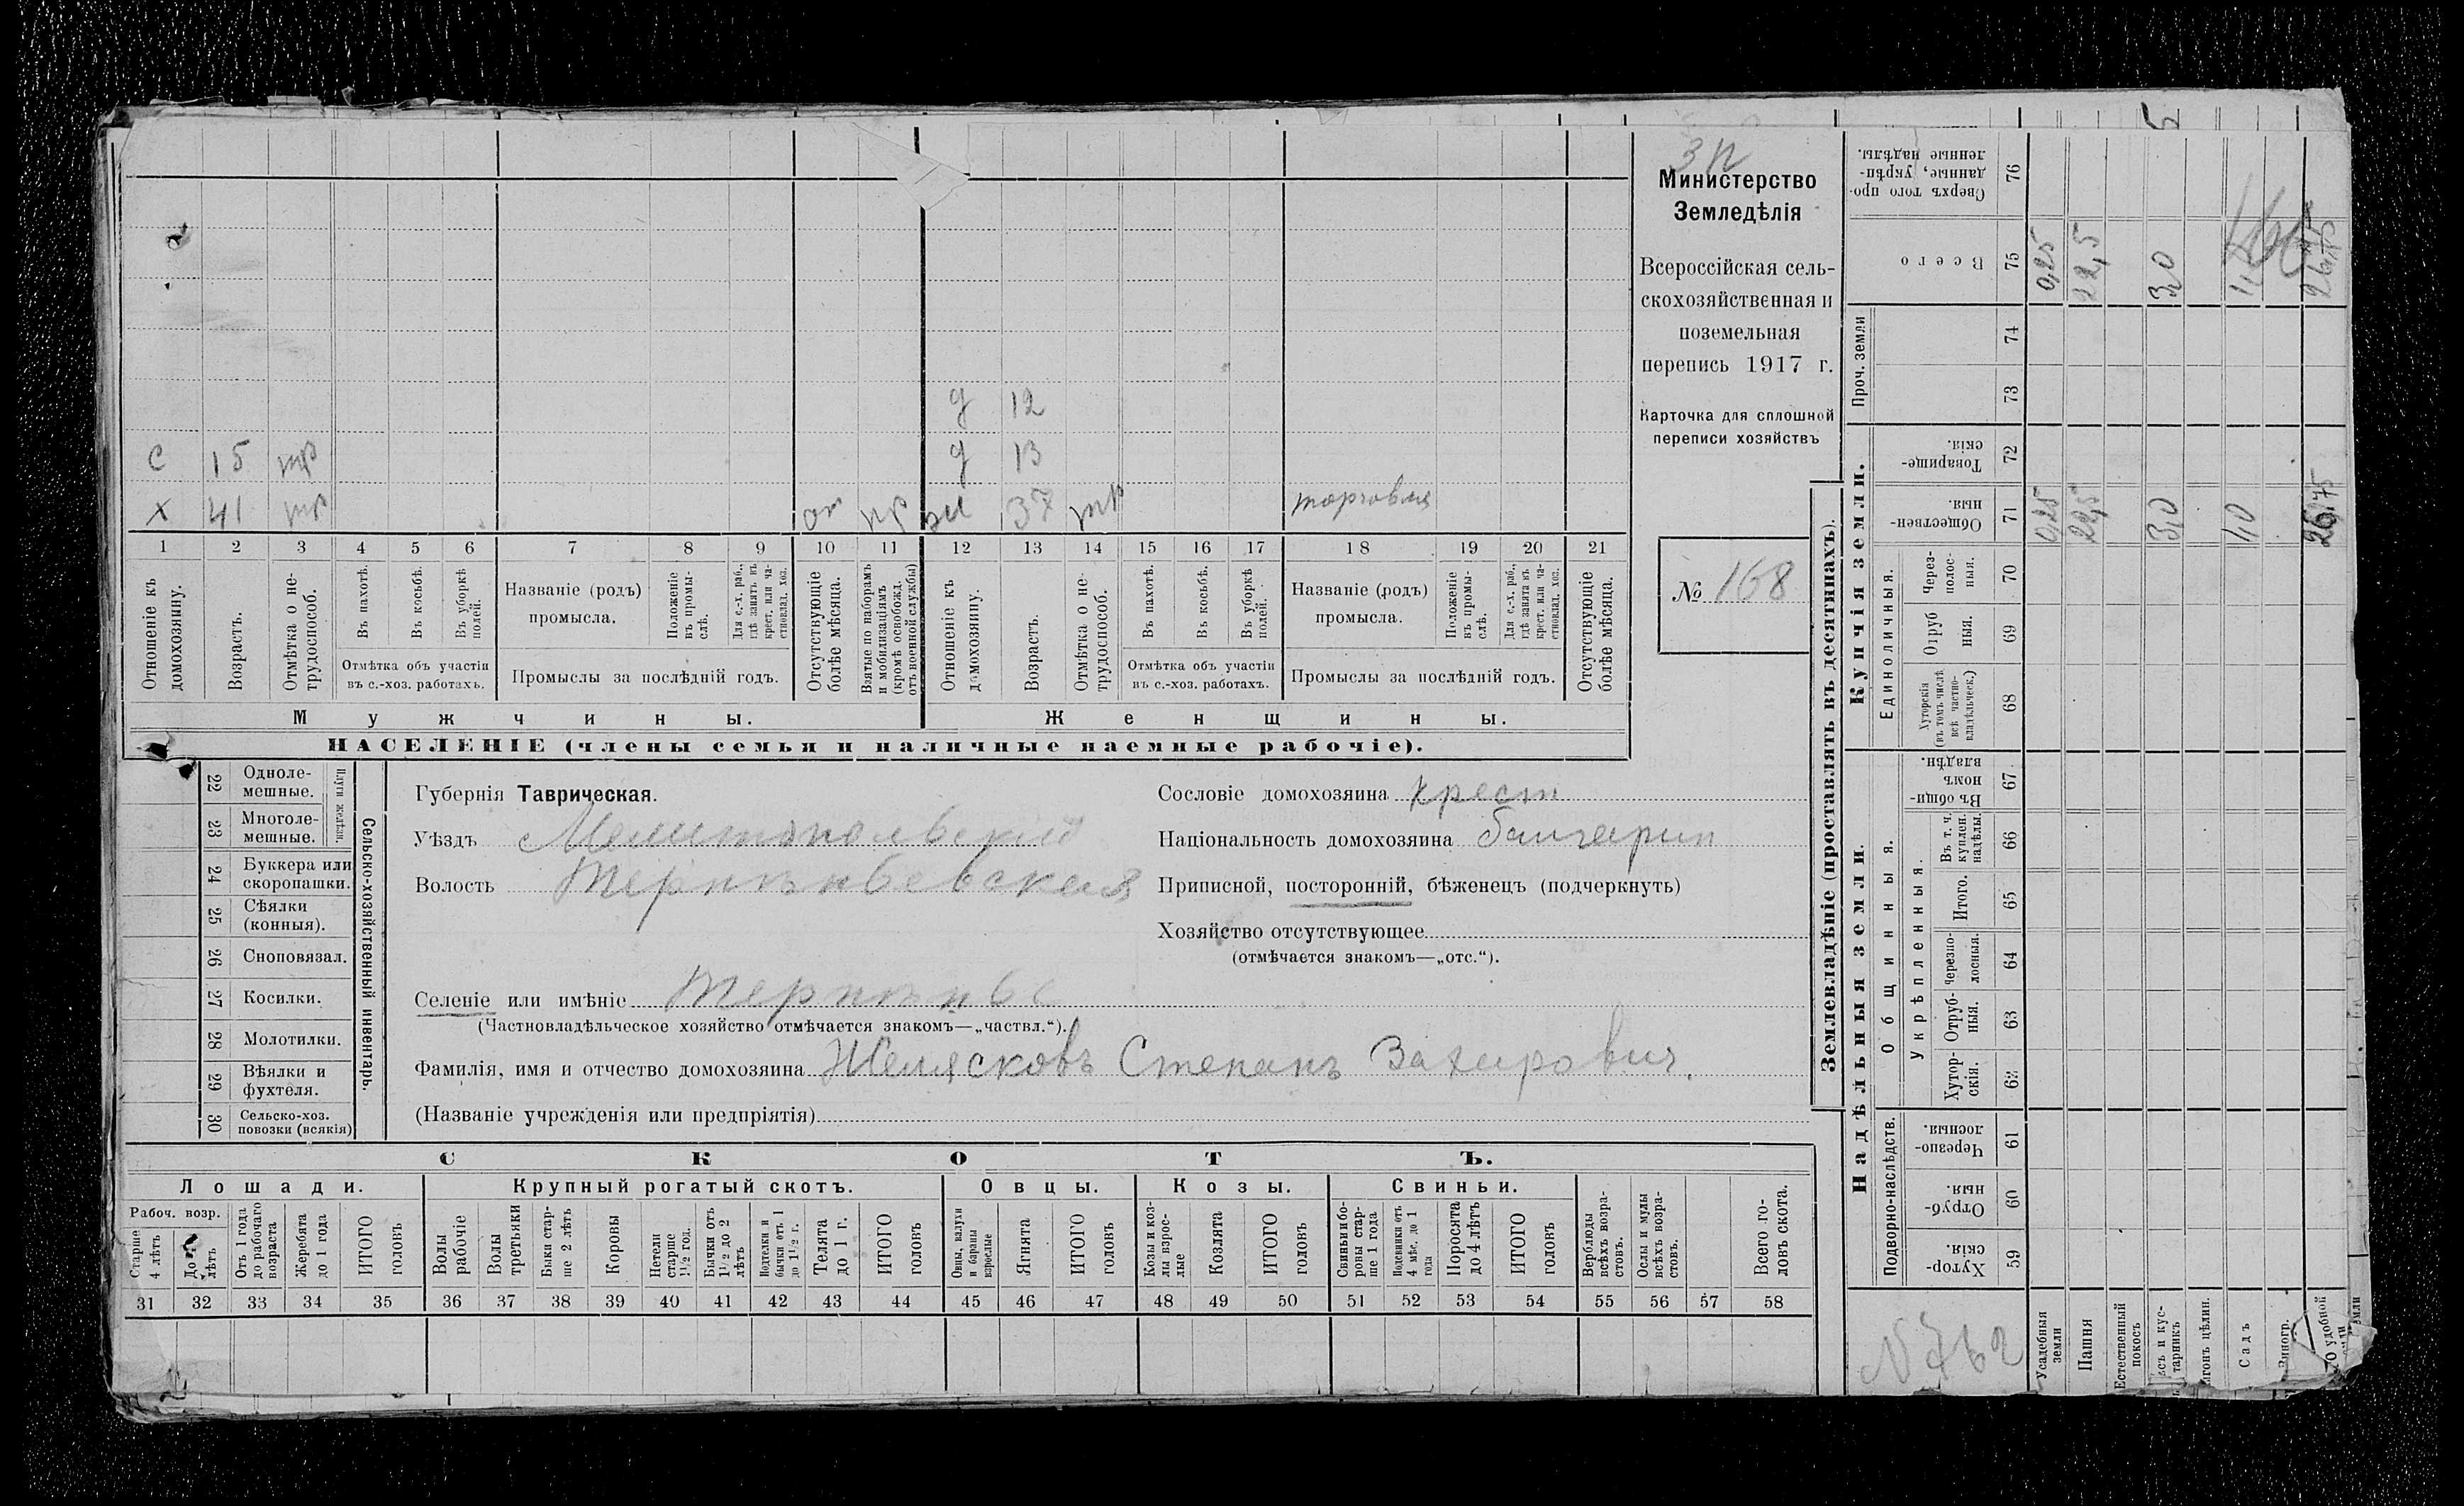 3 п
Министерство
Земледѣлія
Всероссійская сель-
скохозяйственная и
поземельная
перепись 1917 г.
Карточка для сплошной
переписи хозяйствъ
№ 168
д 12
с 15 тр д 13
х 41 тр от пр ж 37 тр торговля
1 2 3 4 5 6 7 8 9 10 11 12 13 14 15 16 17 18 19 20 21
Отношеніе къ домохозяину.
Возрастъ.
Отмѣтка о не-трудоспособ.
Въ пахотѣ.
Въ косьбѣ.
Въ уборкѣ полей.
Отмѣтка объ участіи
въ с.-хоз. работахъ.
Названіе (родъ)
промысла.
Положеніе въ промы-слѣ.
Для с.-х. раб., гдѣ занятъ въ крест. или ча-стновлад. хоз.
Промыслы за послѣдній годъ.
Отсутствующіе болѣе мѣсяца.
Взятые по наборамъ и мобилизаціямъ (кромѣ освобожд. отъ военной службы)
Отношеніе къ домохозяину.
Возрастъ.
Отмѣтка о не-трудоспособ.
Въ пахотѣ.
Въ косьбѣ.
Въ уборкѣ полей.
Отмѣтка объ участіи
въ с.-хоз. работахъ.
Названіе (родъ)
промысла.
Положеніе въ промы-слѣ.
Для с.-х. раб., гдѣ занята въ крест. или ча-стновлад. хоз.
Промыслы за послѣдній годъ.
Отсутствующіе болѣе мѣсяца.
Мужчины. Женщины.
НАСЕЛЕНІЕ (члены семьи и наличные наемные рабочіе).
Сельско-хозяйственный инвентарь.
Плуги желѣзн.
22 Одноле-мешные.
23 Многоле-мешные.
24 Буккера или скоропашки.
25 Сѣялки (конныя).
26 Сноповязал.
27 Косилки.
28 Молотилки.
29 Вѣялки и фухтеля.
30 Сельско-хоз. повозки (всякія)
Губернія Таврическая.
Уѣздъ Мелитопольскій
Волость Терпѣньевская
Селеніе или имѣніе Терпѣнье
(Частновладѣльческое хозяйство отмѣчается знакомъ—„частвл.“).
Фамилія, имя и отчество домохозяина Желясковъ Степанъ Захарович.
(Названіе учрежденія или предпріятія)
Сословіе домохозяина крест
Національность домохозяина болгарин
Приписной, посторонній, бѣженецъ (подчеркнуть)
Хозяйство отсутствующее
(отмѣчается знакомъ—„отс.“).
СКОТЪ.
Лошади. Крупный рогатый скотъ. Овцы. Козы. Свиньи.
Рабоч. возр.
Старше 4 лѣтъ
До лѣтъ
Отъ 1 года до рабочаго возраста
Жеребята до 1 года
ИТОГО головъ
Волы рабочіе
Волы третьяки
Быки стар-ше 2 лѣтъ
Коровы
Нетели старше 1½ год.
Бычки отъ 1½ до 2 лѣтъ
Подтелки и бычки отъ 1 до 1½ г.
Телята до 1 г.
ИТОГО головъ
Овцы, валухи и бараны взрослые
Ягнята
ИТОГО головъ
Козы и коз-лы взрос-лые
Козлята
ИТОГО головъ
Свиньи и бо-ровы стар-ше 1 года
Подсвинки отъ 4 мѣс. до 1 года
Поросята до 4 лѣтъ
ИТОГО головъ
Верблюды всѣхъ возра-стовъ.
Ослы и мулы всѣхъ возра-стовъ.
Всего го-ловъ скота.
31 32 33 34 35 36 37 38 39 40 41 42 43 44 45 46 47 48 49 50 51 52 53 54 55 56 57 58
Землевладѣніе (проставлять въ десятинахъ).
Надѣльныя земли. Купчія земли. Проч. земли
Подворно-наслѣдств.
Общинныя.
Укрѣпленныя.
Единоличныя.
Хутор-скія. 59
Отруб-ныя. 60
Черезпо-лосныя. 61
Хутор-скія. 62
Отруб-ныя. 63
Черезпо-лосныя. 64
Итого. 65
Въ т. ч. куплен. надѣлы. 66
Въ общи-номъ владѣн. 67
Хуторскія (въ томъ числѣ всѣ частно-владѣльческ.) 68
Отруб ныя. 69
Через-полос-ныя. 70
Обществен-ныя 71
Товарище-скія. 72
73
74
Всего 75
Сверхъ того про-данные, укрѣп-ленные надѣлы. 76
Усадебныя земли 0,25 0,25
Пашня 22,5 22,5
Естественный покосъ
съ и кус-тарникъ 3,0 3,0
гонъ цѣлин.
Садъ 1,0 1,0
Виногр.
удобной земли 26,75 26,75